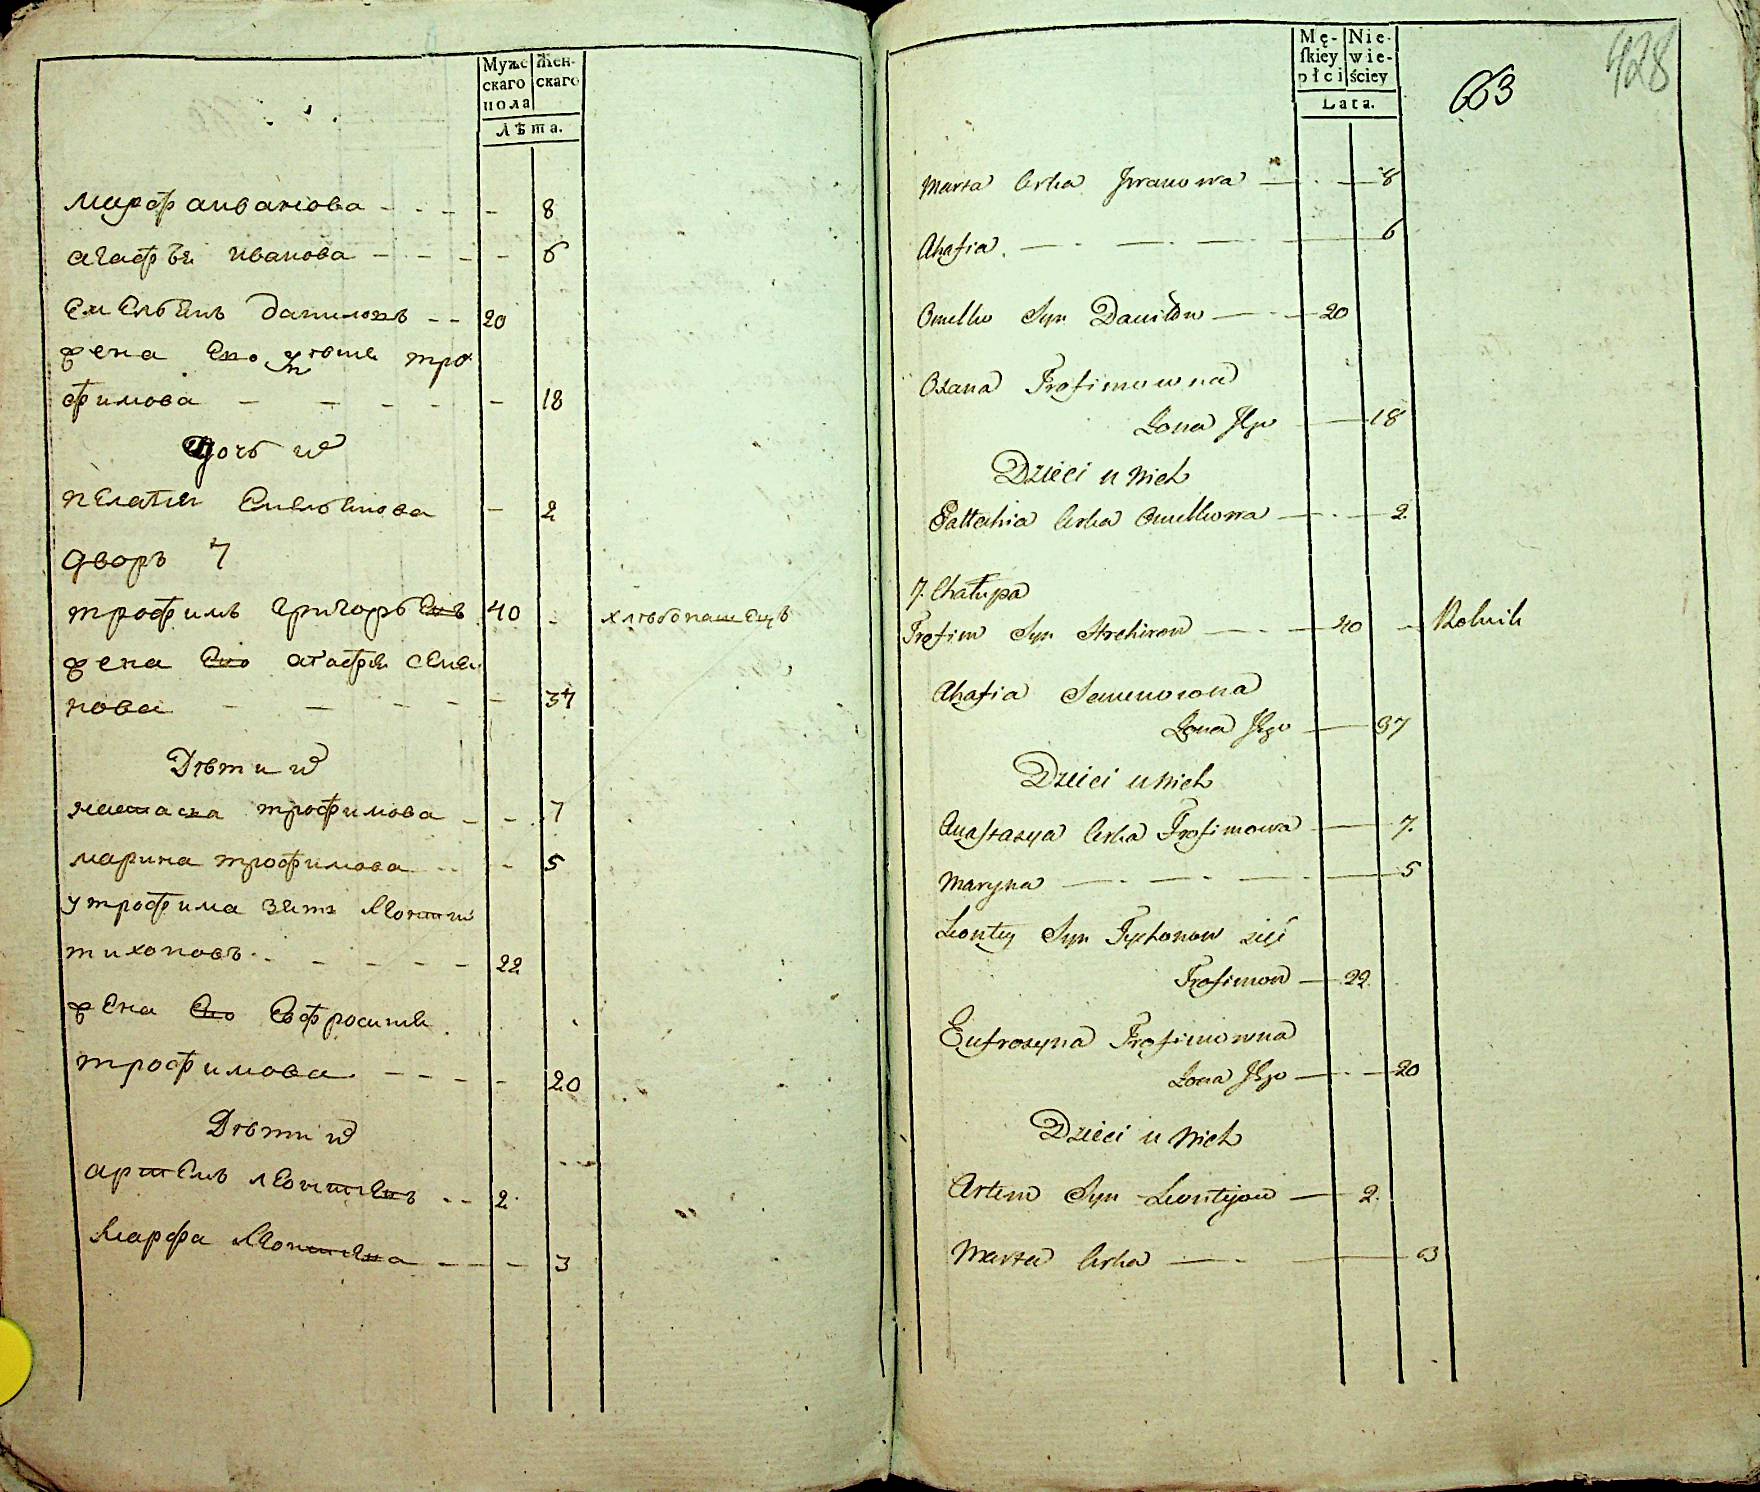 Муже скаго пола
Жен- скаго
Лѣта.
марфа иванова - - - - 8
агафья иванова - - - - 6
Емельянъ даниловъ - - 20
жена Его трофимова - - - - - 18
дочь их
пелагия Емельянова - 2
дворъ 7
трофимъ григорьевъ 40 - хлѣбопашецъ
жена Его агафия семенова - - - - - 37
Дѣти их
настасья трофимова - - 7
марина трофимова - - - 5
у трофима зять Леонтий
тихоновъ - - - - - 22
жена Его Евфросиния
трофимова - - - - 20
Дѣти их
артемъ леонтиевъ - - 2
Марфа Леонтиева - - - 3
Mę- ſkiey płci
Nie- wie- ściey
Lata.
663
428
Marta Corka Jwanowa — . — 8
Ahafia. — . — . — . — 6
Omelko Syn Daniłow — . — 20
Trofimowna
Żona Jego — 18
Dzieci u Nich
Pałłahia Corka Omelkowa — . — 2.
7. Chałupa
Trofim Syn — . — 40 - Rolnik
Ahafia Semenowna
Żona Jego — 37
Dzieci u Nich
Anaſtazya Corka Trofimowa — 7.
Maryna — . — . — . — 5
Leontey Syn Tychonow zięć
Trofimow — 22.
Eufrozyna Trofimowna
Żona Jego — . — 20
Dzieci u Nich
Artem Syn Leontijow — 2.
Marta Corka — . — 3